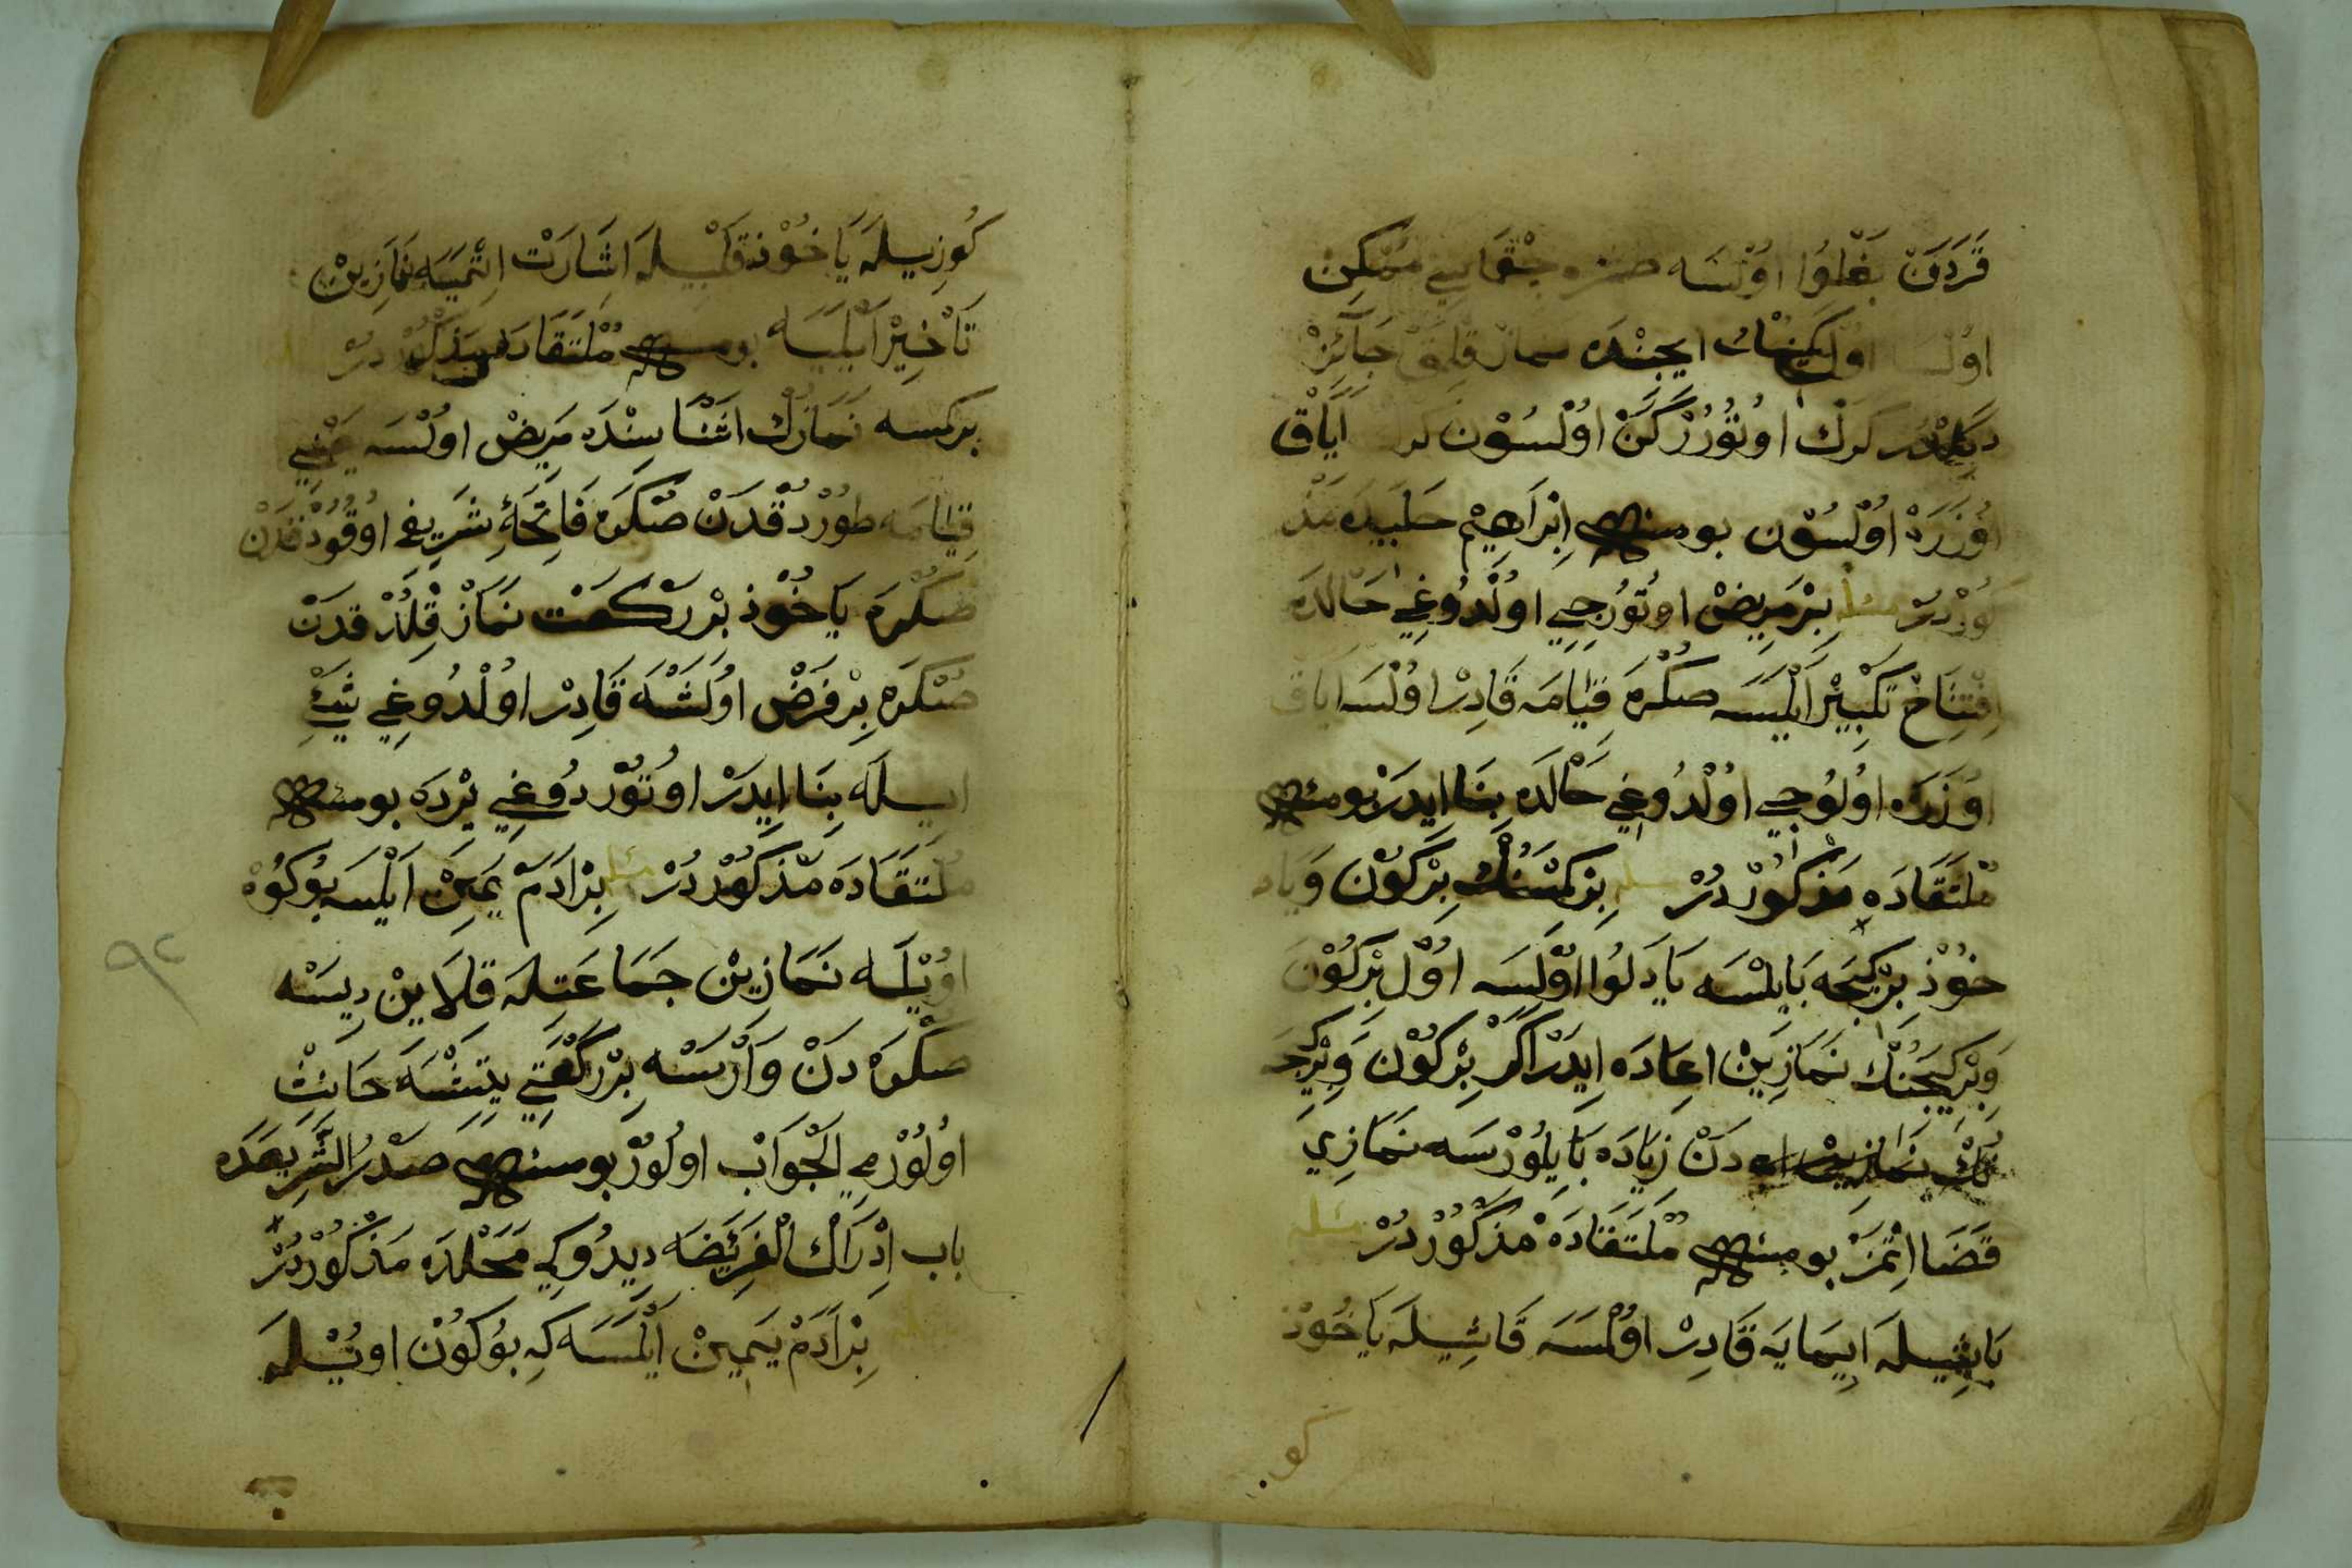 قَرَدَنْ بَغْلُوا اوُلْسَه صكره چِقْمَاسِي مُمْكِنْ
اوُلسا اوُل كَمِينُكْ ايچِنْدَه نماز قِلمَقْ جَآئِزْ
دكلدر كَرَكْ اوُتُوُرُرْكَنْ اوُلْسُوْن كرك اَيَاْق
اوُزَرَه اوُلْسُوْن بو مسئله اِبْرَاهِيْم حَلَبِيدَه مَذْ
كُوْر دُرْ مسئله بِرْ مَرِيضْ اوتُوُرجِي اولْدُوغِي حَالْدَه
اِفْتِتَاحْ تَكْبِيْر اَيْلَيسَه صكْرَه قِيَامَه قَادِرْ اوُلسَه اَيَاق
اوُزَرَه اوُلُوجِي اوُلْدُوغِي حَالْدَه بِنَا ايدَرْ بو مسئله
مُلْتَقَادَه مَذْكُوْر دُرْ مسئله بِرْ كِمْسَنُكْ بِرْ كُوْن وَيَا
خوُذْ بِرْ كِيجَه بَايِلْسَه يَا دَلُوا اوُلسَه اوُل بِرْ كُوْن
وَبِرْ كِيجَنُكْ نَمَازِيَنْ اعَادَه اِيدَرْ اكَرْ بِرْ كُوْن وَبِرْ كِيجَه
نُكْ نَمَازِيْن دَنْ زِيَادَه بَايِلُوْرسَه نَمَازِي
قَضَا اِتْمَزْ بو مسئله مُلْتَقَادَه مَذْكُوْر دُرْ مسئله
بَاشِيلَه اِيمَايَه قَادِرْ اوُلْمَسَه قَاشِيلَه يَا خُوْذ
كو
كُوزِيلَه يَا خُوْذ قَلْبِيلَه اشَارَتْ اِتْمَيَه نَمَازِينْ
تَأْخِيْر اَيْلَيَه بو مسئله مُلْتَقَادَه مَذْكُوْر دُرْ
بر كمسه نَمَازُكْ اثْنَا سِنْدَه مَرِيضْ اولْسَه يَعْنِي
قِيَامَه طوُرْدُقْدَنْ صُكْرَه فَاتِحَۀ شَرِيفي اوُقوُدُقدَنْ
صُكْرَه يَا خُوْذ بِرْ رَكْعَتْ نَمَازْ قِلْدُقدَنْ
صُكْرَه بِرْ فَرَضْ اوُلَشْسَه قَادِرْ اوُلْدُوغِي شَيْئ
ايسلَه بِنَا اِيدَرْ اوُتُوْر دُوغِي يَرْدَه بو مسئله
مُلْتَقَادَه مَذْكُوْر دُرْ مسئله بِرْ اَدَمْ يَمِينْ اَيْلَيسَه بُوكُوْنْ
اوُيْلَه نَمَازِينْ جَمَاعَتِلَه قِلَايِنْ دِيسَه
صكْرَه دَنْ وَارْسَه بِرْ رَكْعَتِي يِتِشْسَه حَانِثْ
اوُلُوُرْمِي اَلْجَوَابْ اولُوُرْ بو مسئله صَدْرُ الشَّرِيعَدَه
باب اِدْرَاكْ الْفَرِيْضَه دِيدُوكِي مَحَلْدَه مَذْكُوْر دُرْ
مسئله بِرْ اَدَمْ يَمِينْ اَيْلَسَه كِه بُو كُوْن اوُيْلَه